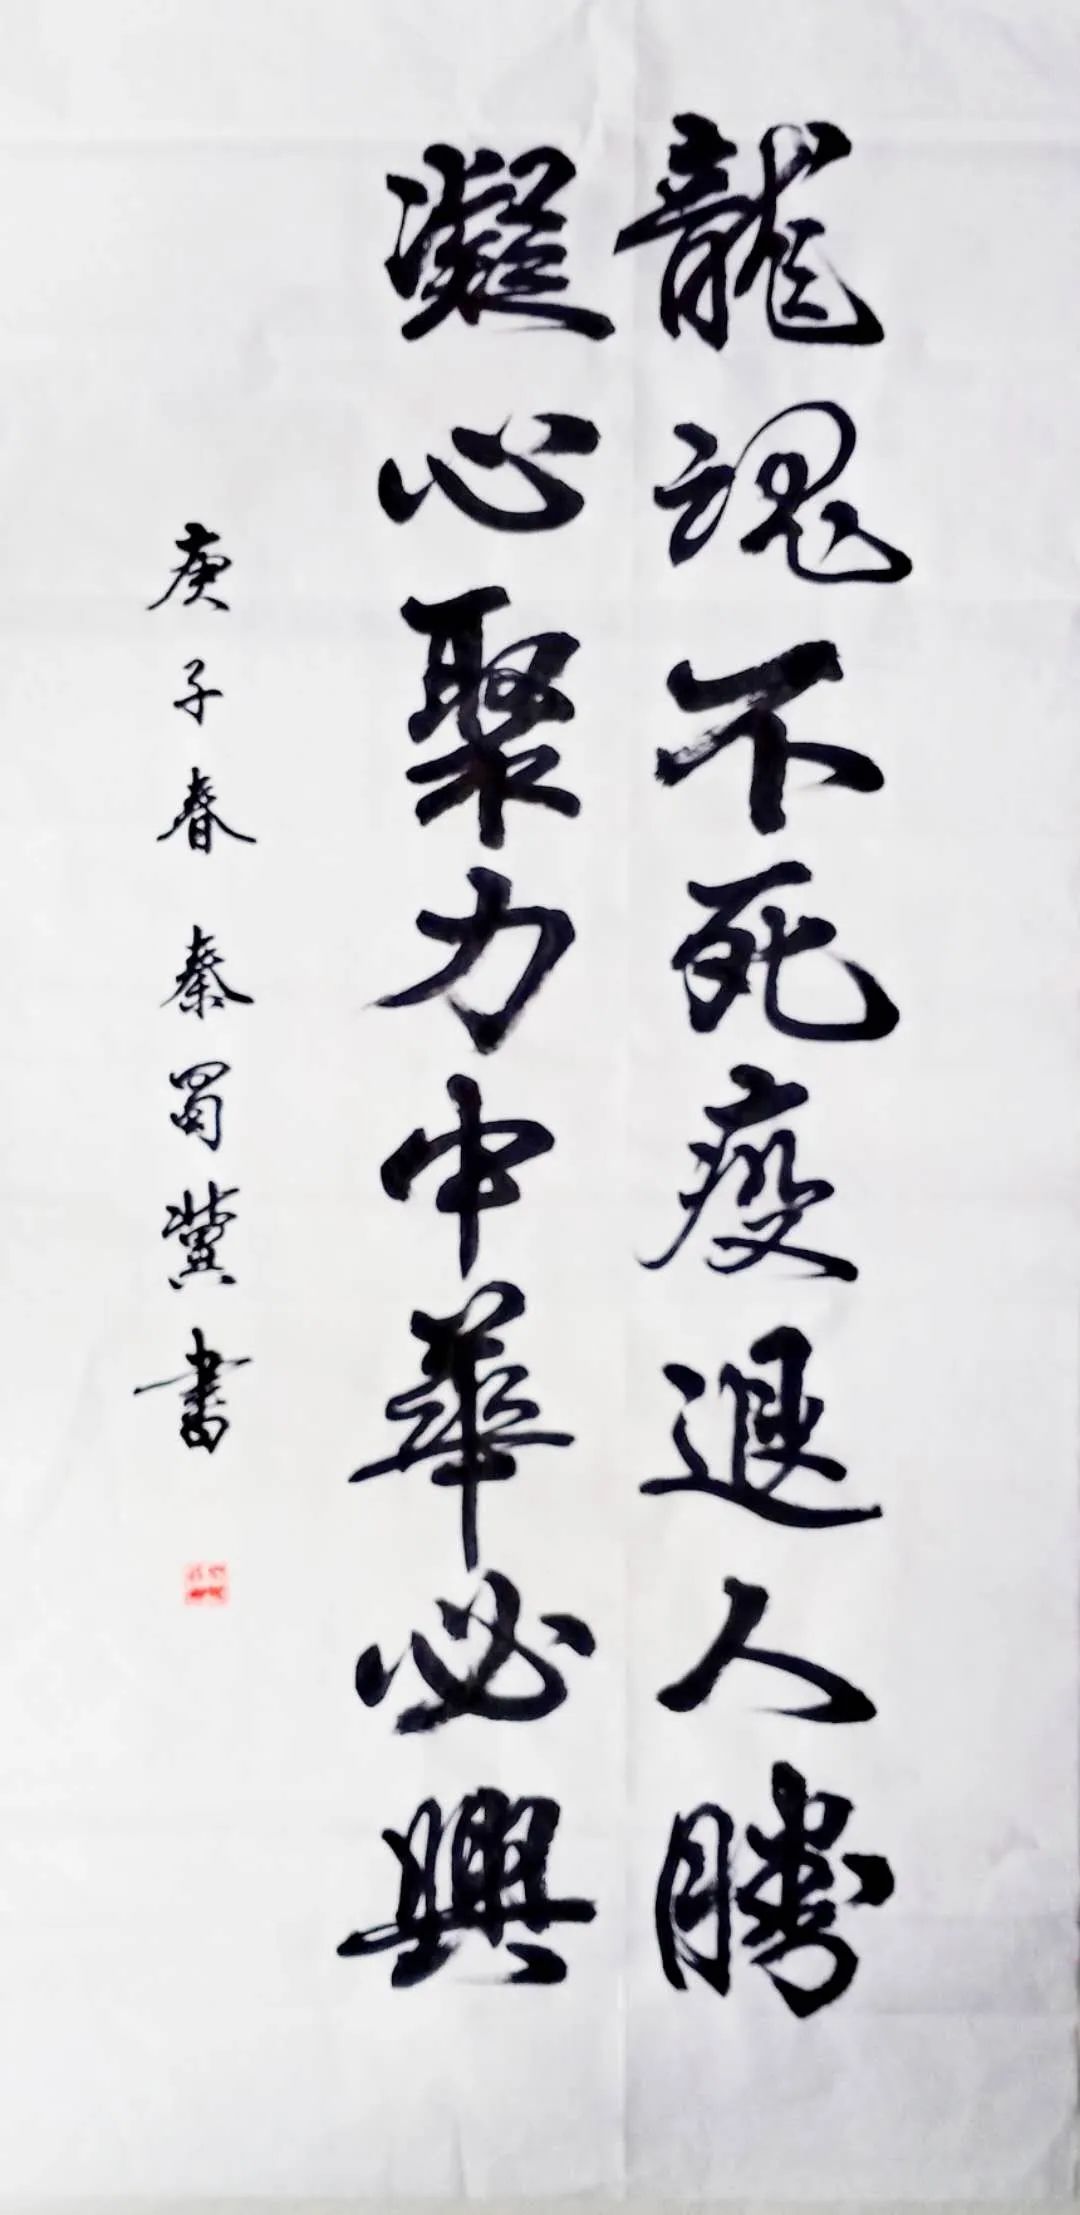 龍魂不死疫退人勝
凝心聚力中華必興
庚子春 秦蜀冀書